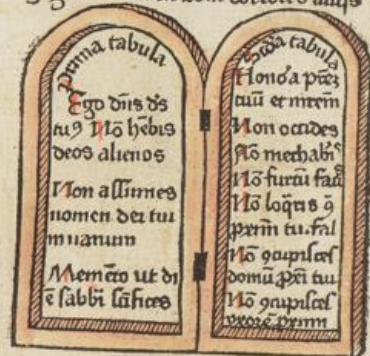 Prima tabula
Ego dn̄s ds̄
tuꝯ Nō hēbis
deos alienos
Non assumes
nomen dei tui
in uanum
Memēto ut di
ē sabbi sc̄ifices
Scda tabula
Honōa p̄rēz
tuū et mr̄em
Non occides
Nō mechabiꝰ
Nō furtū faci
Nō loq̄ris ꝯ
p̄xm̄ tu. fal
Nō ꝯcupisces
domū p̄xi tui
Nō ꝯcupisces
p̄xm̄i